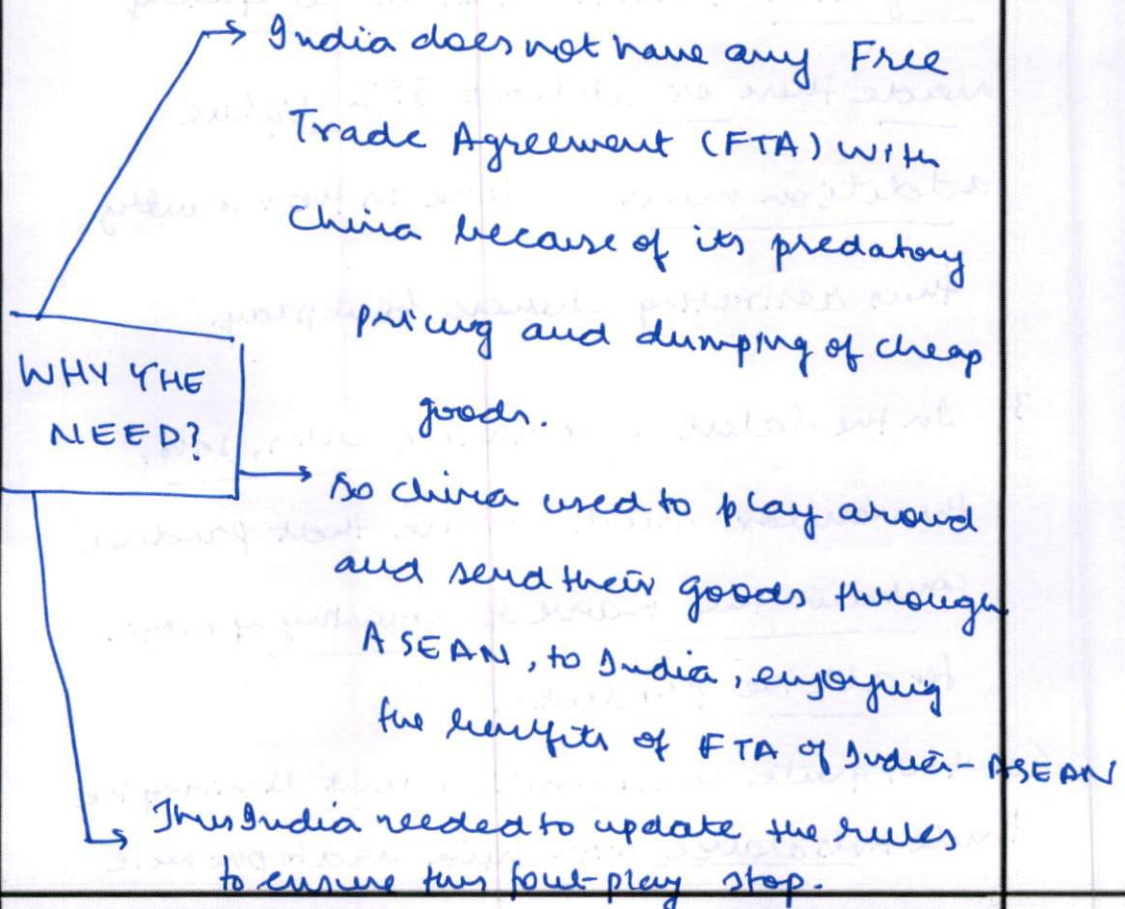 India does not have any Free
Trade Agreement (FTA) with
China because of its predatory
pricing and dumping of cheap
goods.
WHY THE
NEED?
So China used to play aroud
and send their goods through
ASEAN, to India, enjoying
the benefits of FTA of India-ASEAN
Thus India needed to update the rules
to ensure this foul-play stop.